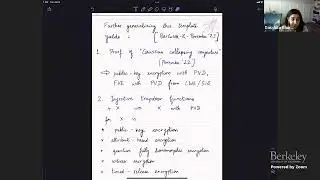 Further generalizing this template
yields : [Bartusek-K-Poremba '23]
1. Proof of "Gaussian collapsing conjecture"
[Poremba '22]
⇒ public-key encryption with PVD,
FHE with PVD from LWE/SIS
2. Injective Trapdoor functions
+ X ⇒ X with PVD
for X in
* public-key encryption
* attribute-based encryption
* quantum fully homomorphic encryption
* witness encryption
* timed-release encryption
Berkeley
Powered by Zoom